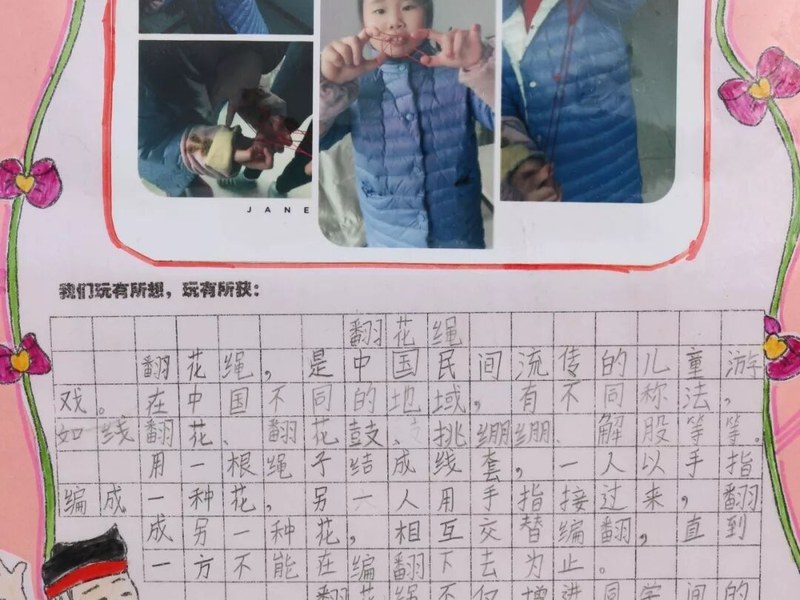 JANE
我们玩有所想，玩有所获：
翻花绳
翻花绳，是中国民间流传的儿童游
戏。在中国不同的地域，有不同称法，
如线翻花、翻花鼓、挑绷绷、解股等等。
用一根绳子结成线套，一人以手指
编成一种花，另一人用手指接过来，翻
成另一种花，相互交替编翻，直到
一方不能在编翻下去为止。
翻花绳不仅增进同学间的